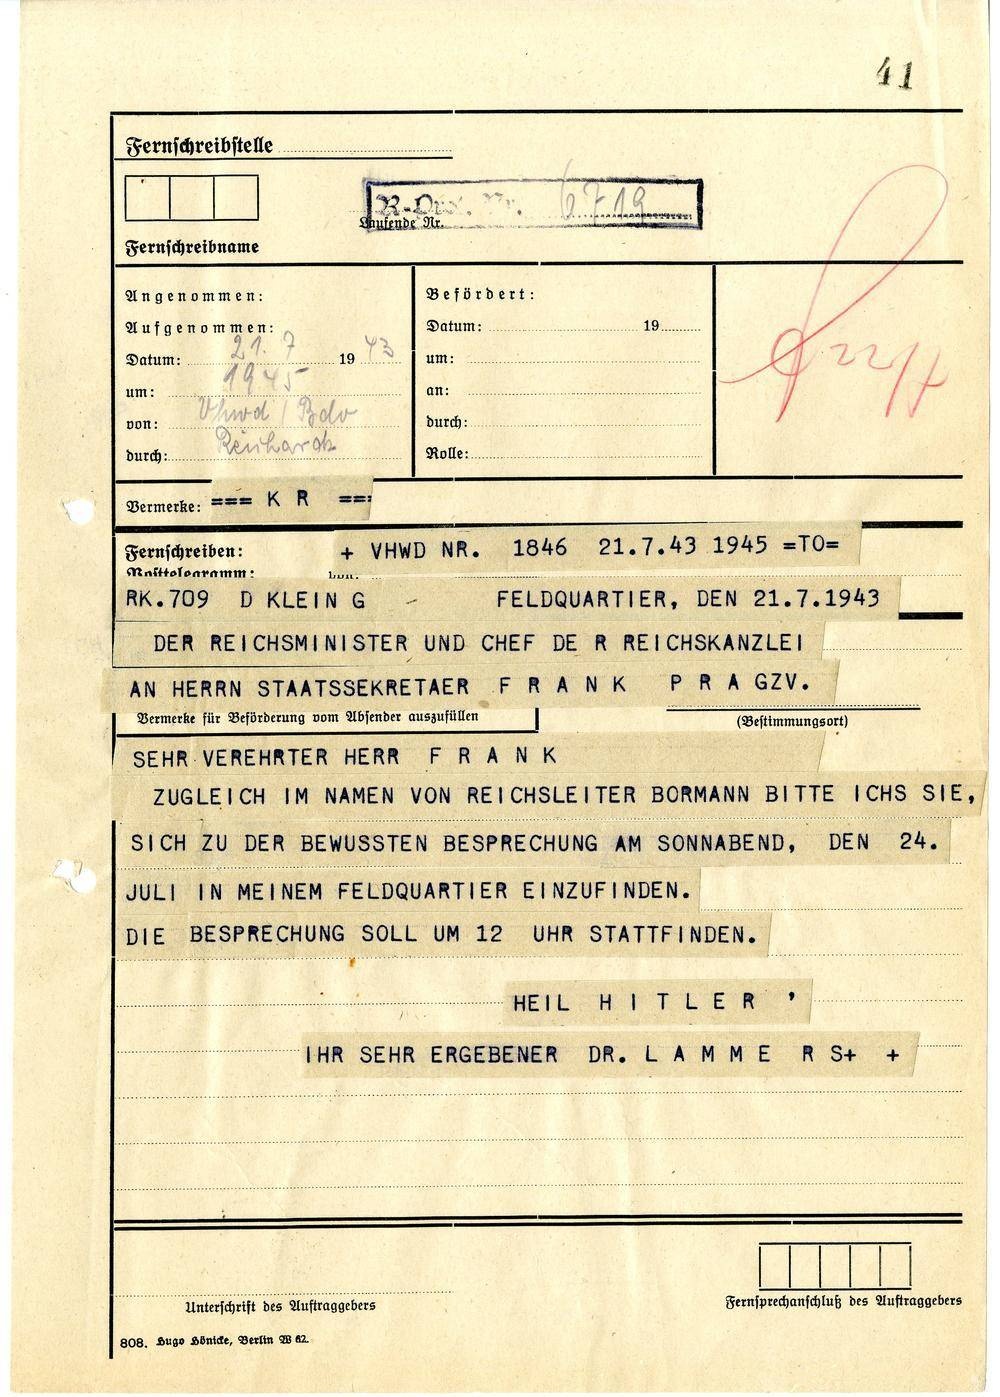 41
Fernschreibstelle
R-Drz. Nr. 6719
Laufende Nr.
Fernschreibname
Angenommen:
Aufgenommen:
Datum: 21. 7 19 43
um: 1945
von: Vhwd / Bdv
durch: Reinhardt
Befördert:
Datum: 19
um:
an:
durch:
Rolle:
22/7
Vermerke: === K R ===
Fernschreiben:
Posttelegramm:
+ VHWD NR. 1846 21.7.43 1945 =TO=
RK.709 D KLEIN G - FELDQUARTIER, DEN 21.7.1943
DER REICHSMINISTER UND CHEF DE R REICHSKANZLEI
AN HERRN STAATSSEKRETAER F R A N K P R A GZV.
Vermerke für Beförderung vom Absender auszufüllen
(Bestimmungsort)
SEHR VEREHRTER HERR F R A N K
ZUGLEICH IM NAMEN VON REICHSLEITER BORMANN BITTE ICHS SIE,
SICH ZU DER BEWUSSTEN BESPRECHUNG AM SONNABEND, DEN 24.
JULI IN MEINEM FELDQUARTIER EINZUFINDEN.
DIE BESPRECHUNG SOLL UM 12 UHR STATTFINDEN.
HEIL H I T L E R '
IHR SEHR ERGEBENER DR. L A M M E R S+ +
Unterschrift des Auftraggebers
Fernsprechanschluß des Auftraggebers
808. Hugo Hönicke, Berlin W 62.